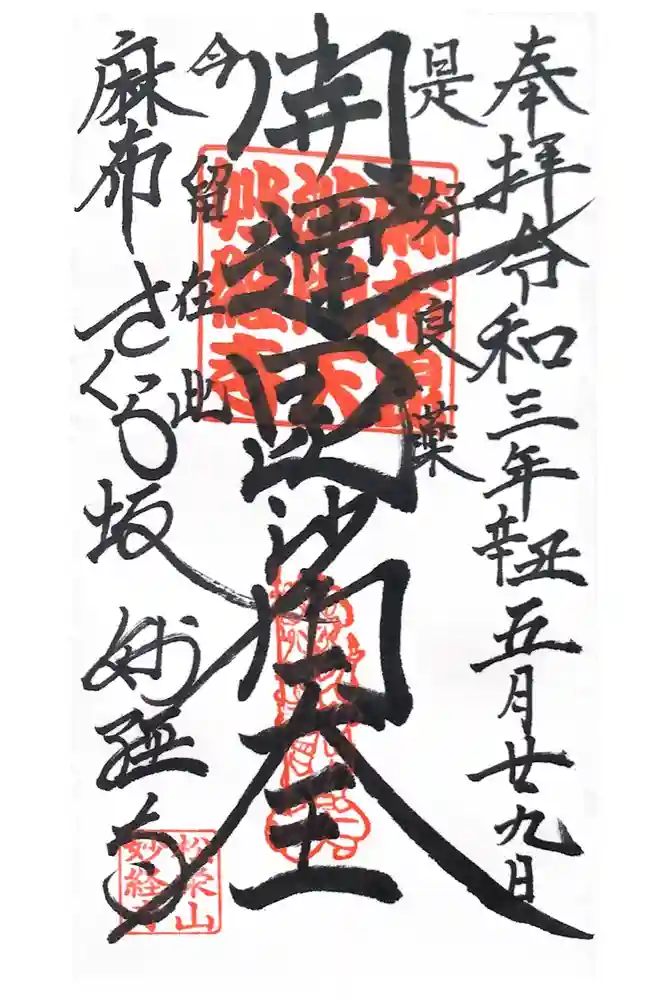 奉拝令和三年辛丑五月廿九日
是好良薬
開運毘沙門天王
今留在此
麻布さくら坂妙経寺
松栄山
妙経寺